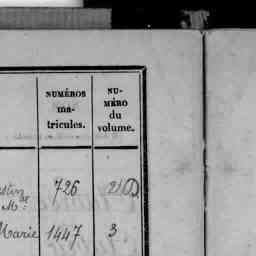 NUMÉROS
ma-
tricules.
NU-
MÉRO
du
volume.
726
Mme
Marie 1447 3